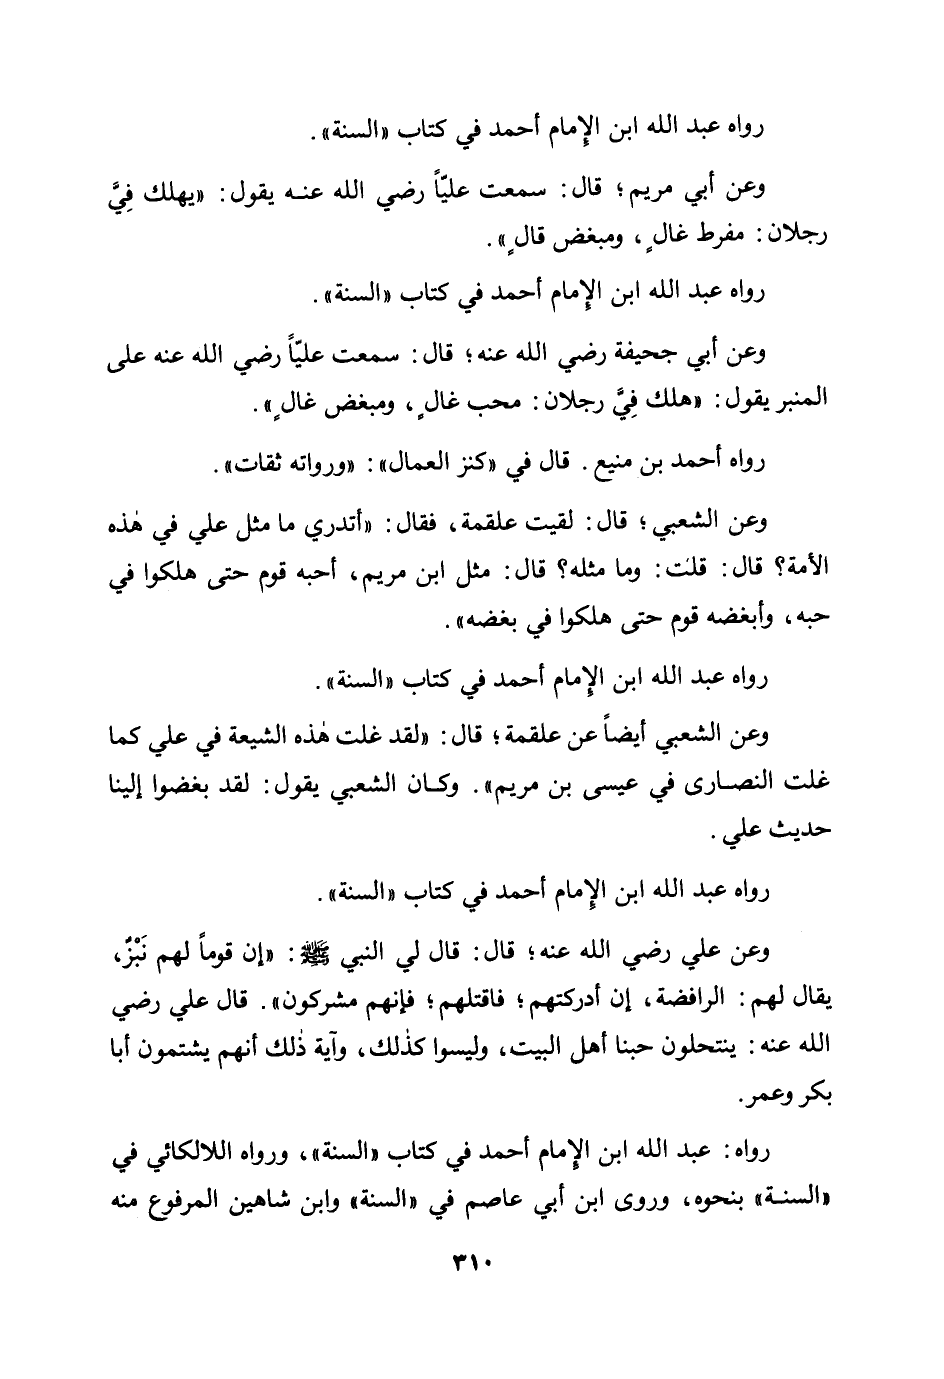 رواه عبد الله ابن الإمام أحمد في كتاب «السنة».
وعن أبي مريم؛ قال: سمعت عليّاً رضي الله عنه يقول: «يهلك فِيَّ
رجلان: مفرط غالٍ، ومبغض قالٍ».
رواه عبد الله ابن الإمام أحمد في كتاب «السنة».
وعن أبي جحيفة رضي الله عنه؛ قال: سمعت عليّاً رضي الله عنه على
المنبر يقول: «هلك فِيَّ رجلان: محب غالٍ، ومبغض غالٍ».
رواه أحمد بن منيع. قال في «كنز العمال»: «ورواته ثقات».
وعن الشعبي؛ قال: لقيت علقمة، فقال: «أتدري ما مثل علي في هٰذه
الأمة؟ قال: قلت: وما مثله؟ قال: مثل ابن مريم، أحبه قوم حتى هلكوا في
حبه، وأبغضه قوم حتى هلكوا في بغضه».
رواه عبد الله ابن الإمام أحمد في كتاب «السنة».
وعن الشعبي أيضاً عن علقمة؛ قال: «لقد غلت هٰذه الشيعة في علي كما
غلت النصارى في عيسى بن مريم». وكان الشعبي يقول: لقد بغضوا إلينا
حديث علي.
رواه عبد الله ابن الإمام أحمد في كتاب «السنة».
وعن علي رضي الله عنه؛ قال: قال لي النبي ﷺ: «إن قوماً لهم نَبْزٌ،
يقال لهم: الرافضة، إن أدركتهم؛ فاقتلهم؛ فإنهم مشركون». قال علي رضي
الله عنه: ينتحلون حبنا أهل البيت، وليسوا كذٰلك، وآية ذٰلك أنهم يشتمون أبا
بكر وعمر.
رواه: عبد الله ابن الإمام أحمد في كتاب «السنة»، ورواه اللالكائي في
«السنة» بنحوه، وروى ابن أبي عاصم في «السنة» وابن شاهين المرفوع منه
٣١٠